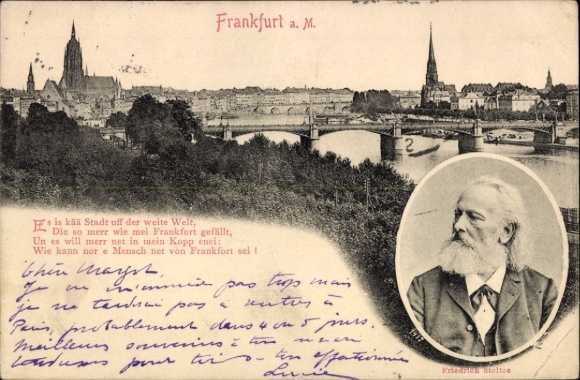 Frankfurt a. M.
Es is kää Stadt uff der weite Welt,
Die so merr wie mei Frankfort gefällt,
Un es will merr net in mein Kopp enei:
Wie kann nor e Mensch net von Frankfort sei!
Chère Margot.
Je ne m'ennuie pas trop mais
je ne tardrai pas à rentrer à
Paris, probablement dans 4 ou 5 jours.
Meilleurs souvenirs à ton mari
pour toi ton affectionnée
Lucie
Friedrich Stoltze